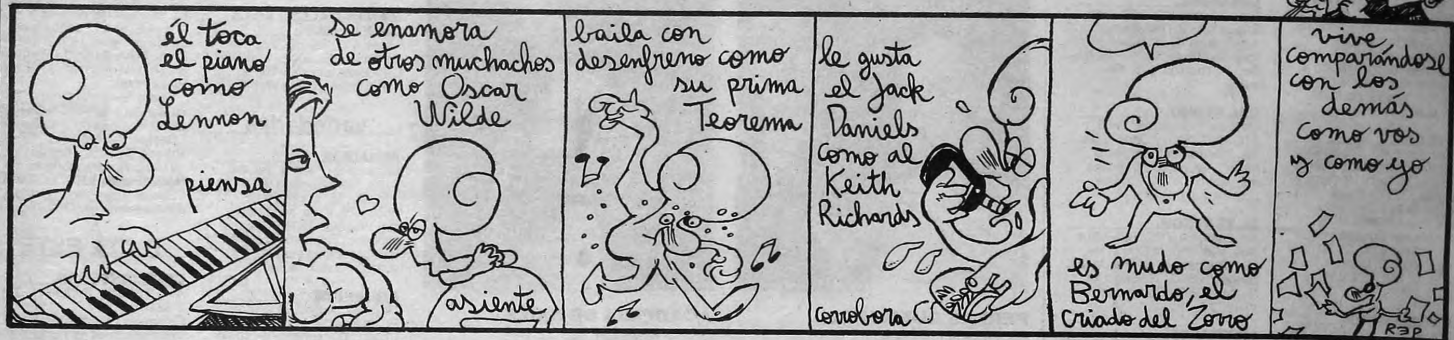 él toca
el piano
como
Lennon
piensa
se enamora
de otros muchachos
como Oscar
Wilde
asiente
baila con
desenfreno como
su prima
Teorema
le gusta
el Jack
Daniels
como al
Keith
Richards
corrobora
es mudo como
Bernardo, el
criado del Zorro
vive
comparándose
con los
demás
como vos
y como yo
REP